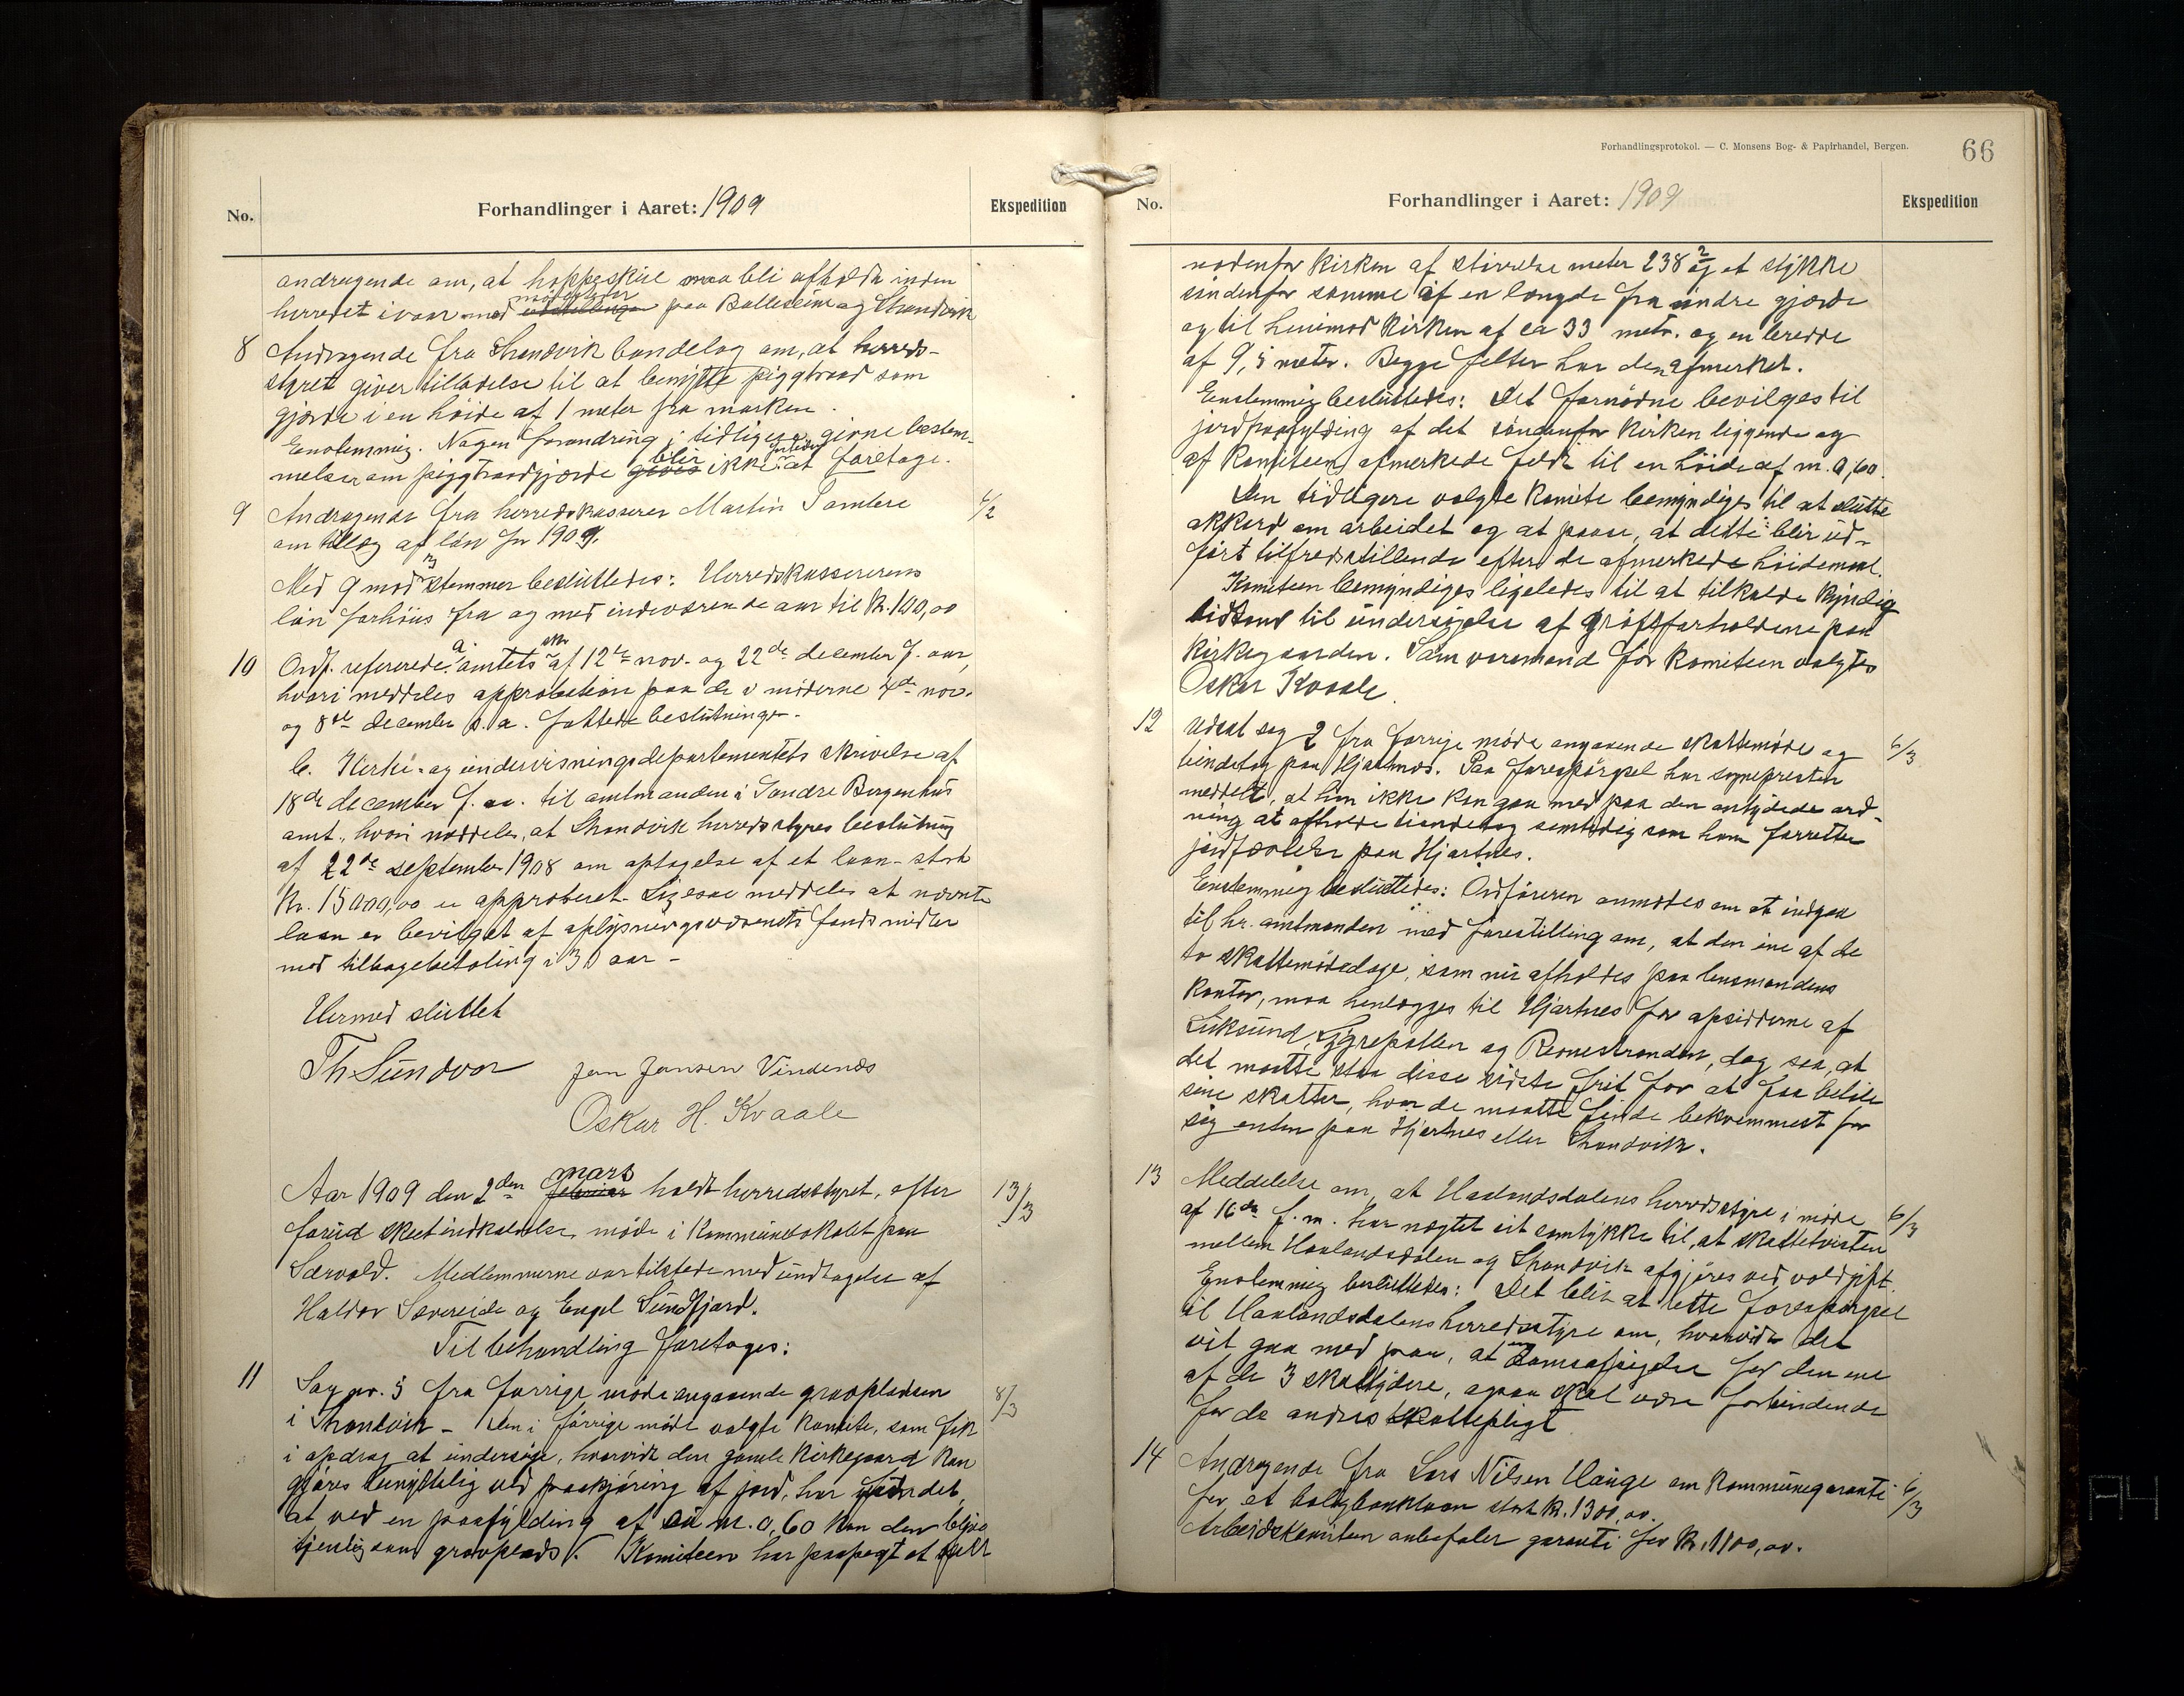 No.
Forhandlinger i Aaret: 1909
Ekspedition
andragende om, at hoppeskue maa bli afholdt inden
herredet ivaar med udstillinger mødesteder paa Balleseim og Strandvik
8 Andragende fra Strandvik bondelag om, at herreds-
styret giver tilladelse til at benytte piggtraad som
gjærde i en høide af 1 meter fra marken.
Enstemmig. Nogen forandring i tidligere givne bestem-
melser om piggtraadgjærde gives blir ikke at foretage.
9 Andragende fra herredskasserer Martin Tombre 6/2
om tillæg af løn for 1909.
Med 9 mod stemmer besluttedes: Herredskassererens
løn forhøies fra og med indeværende aar til kr. 100,00
10 Ordf. refererede a. amtets skr. af 12te nov. og 22de december f. aar,
hvori meddeles approbation paa de i møderne 4de nov.
og 8de december s. a. fattede beslutninger.
b. Kirke- og undervisningsdepartementets skrivelse af
18de december f. a. til amtmanden i Søndre Bergenhus
amt, hvori meddeles, at Strandvik herredsstyres beslutning
af 22de september 1908 om optagelse af et laan stort
kr. 15000,00 er approberet. Ligesaa meddeles at nævnte
laan er bevilget af oplysningsvæsenets fonds midler
med tilbagebetaling i 30 aar -
Hermed sluttet
Th Sundvor Jan Jansen Vindenes
Oskar H. Kvaale
Aar 1909 den 2den februar mars holdt herredsstyret, efter 13/3
forud skeet indkaldelse, møde i kommunelokalet paa
Særvold. Medlemmerne var tilstede med undtagelse af
Haldor Sævereide og Engel Sundfjord.
Til behandling foretoges:
11 Sag nr. 5 fra forrige møde angaaende gravpladsen 8/3
i Strandvik - Den i forrige møde valgte komite, som fik
i opdrag at undersøge, hvorvidt den gamle kirkegaard kan
gjøres benyttelig ved paakjøring af jord, har fundet,
at ved en paafylding af m. 0,60 kan den blive
tjenlig som gravplads. Komiteen har paapegt et felt
Forhandlingsprotokol. — C. Monsens Bog- & Papirhandel, Bergen.
66
No.
Forhandlinger i Aaret: 1909
Ekspedition
nordenfor kirken af størrelse meter 238² og et stykke
søndenfor samme af en længde fra indre gjærde
og til henimod kirken af ca 33 metr. og en bredde
af 9,5 meter. Begge felter har den afmerket.
Enstemmig besluttedes: Det fornødne bevilges til
jordpaafylding af det søndenfor kirken liggende og
af komiteen afmerkede felt til en høide af m. 0,60.
Den tidligere valgte komite bemyndiges til at slutte
akkord om arbeidet og at paase, at dette blir ud-
ført tilfredsstillende efter de afmerkede høidemaal.
Komiteen bemyndiges ligeledes til at tilkalde kyndig
bistand til undersøgelse af grøftforholdene paa
kirkegaarden. Som varamand for komiteen valgtes
Oskar Kvaale.
12 Udsat sag 2 fra forrige møde angaaende skattemøde og 6/3
tiendetog paa Hjartnes. Paa forespørgsel har sognepresten
meddelt, at han ikke kan gaa med paa den antydede ord-
ning at afholde tiendetog samtidig som han forretter
jordfæstelse paa Hjartnes.
Enstemmig besluttedes: Ordføreren anmodes om at indgaa
til hr. amtmanden med forestilling om, at den ene af de
to skattemødedage, som nu afholdes paa lensmandens
kontor, maa henlægges til Hjartnes for opsidderne af
Luksund, Lygrepollen og Revnestranden, dog saa, at
det maatte staa disse sidste frit for at faa betale
sine skatter, hvor de maatte finde bekvemmest for
sig enten paa Hjartnes eller Strandvik.
13 Meddelelse om, at Haalandsdalens herredsstyre i møde 6/3
af 16de f. m. har nægtet sit samtykke til, at skattetvisten
mellem Haalandsdalen og Strandvik afgjøres ved voldgift.
Enstemmig besluttedes: Det blir at rette forespørgsel
til Haalandsdalens herredsstyre om, hvorvidt det
vil gaa med paa, at en domsafsigelse for den ene
af de 3 skatydere, ogsaa skal være forbindende
for de andres skattepligt
14 Andragende fra Lars Nilsen Hauge om kommunegaranti 6/3
for et boligbanklaan stort kr. 1300,00.
Arbeidskomiteen anbefaler garanti for kr. 1100,00.